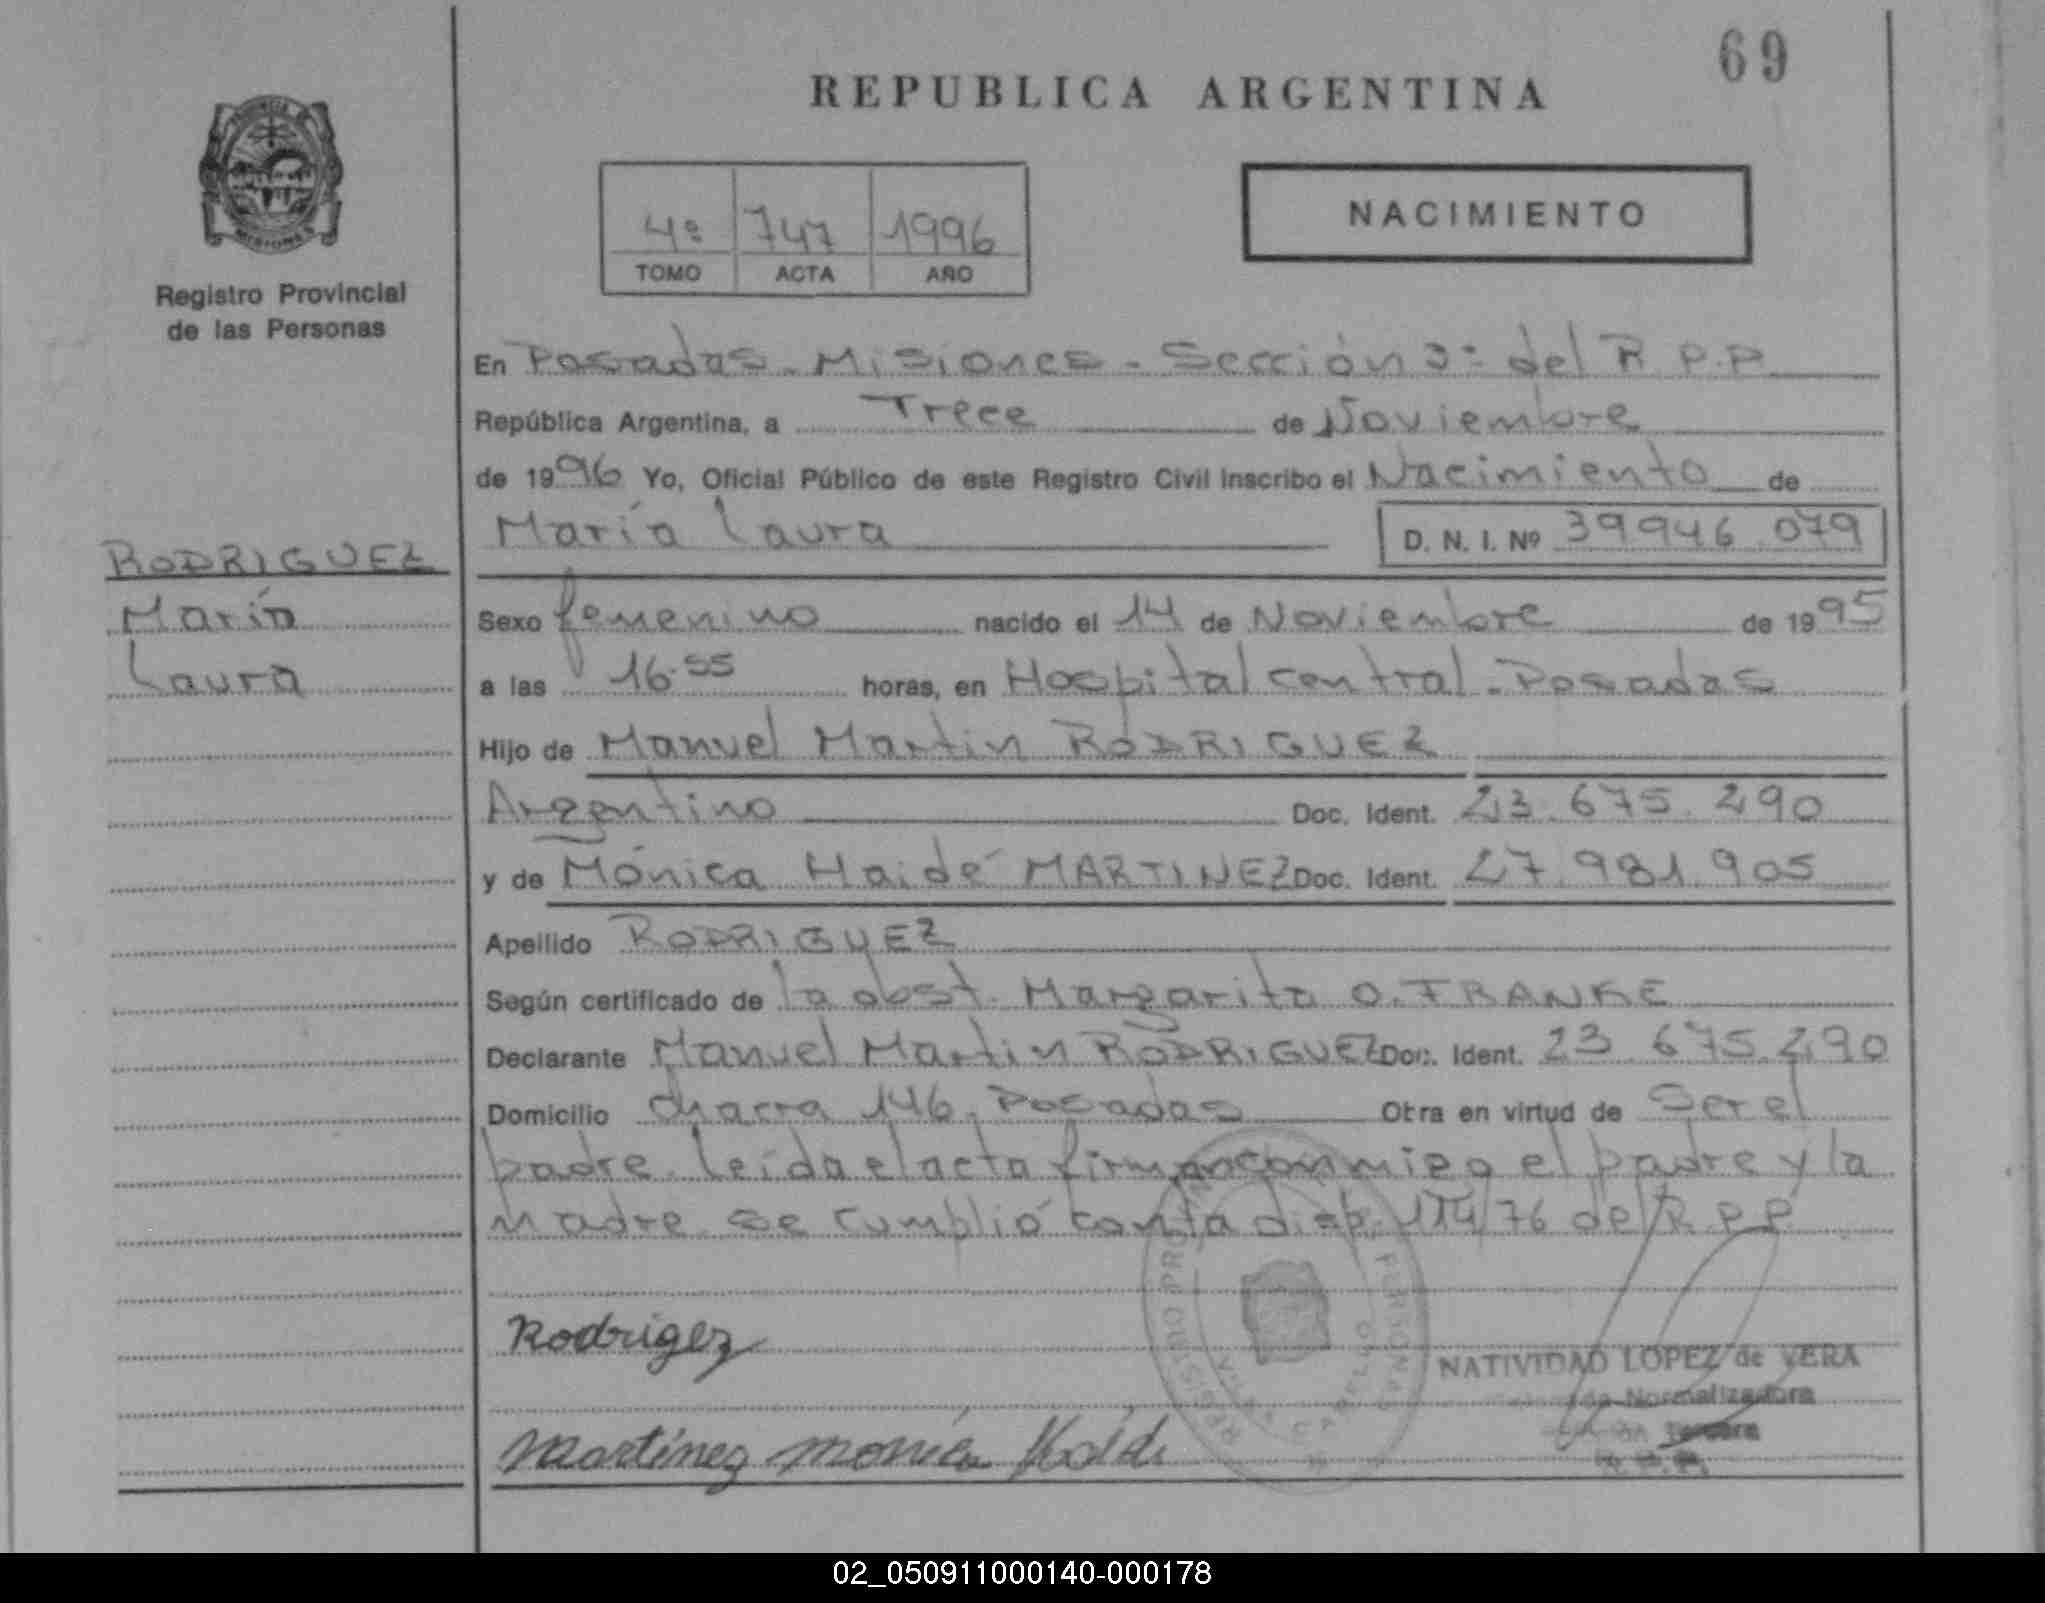 69
REPUBLICA ARGENTINA
NACIMIENTO
4º 747 1996
TOMO ACTA AÑO
Registro Provincial
de las Personas
En Posadas - Misiones - Sección 3º del R.P.P
República Argentina, a Trece de Noviembre
de 1996 Yo, Oficial Público de este Registro Civil inscribo el Nacimiento de
María Laura D. N. I. Nº 39946.079
RODRIGUEZ
María
Laura
Sexo femenino nacido el 14 de Noviembre de 1995
a las 16.55 horas, en Hospital central - Posadas
Hijo de Manuel Martin RODRIGUEZ
Argentino Doc. Ident. 23.675.290
y de Mónica Haidé MARTINEZ Doc. Ident. 27.981.905
Apellido RODRIGUEZ
Según certificado de la obst. Margarita O. FRANKE
Declarante Manuel Martin RODRIGUEZ Doc. Ident. 23.675.290
Domicilio chacra 146. Posadas Obra en virtud de Ser el
padre. leida el acta firman conmigo el padre y la
madre se cumplió con la disp. 114/76 del R.P.P
Rodrigez
NATIVIDAD LOPEZ de VERA
Normalizadora
Tercera
R.P.P.
Martínez monica
REGISTRO PERSONAS
VILLA CABELLO
MISIONES
02_050911000140-000178